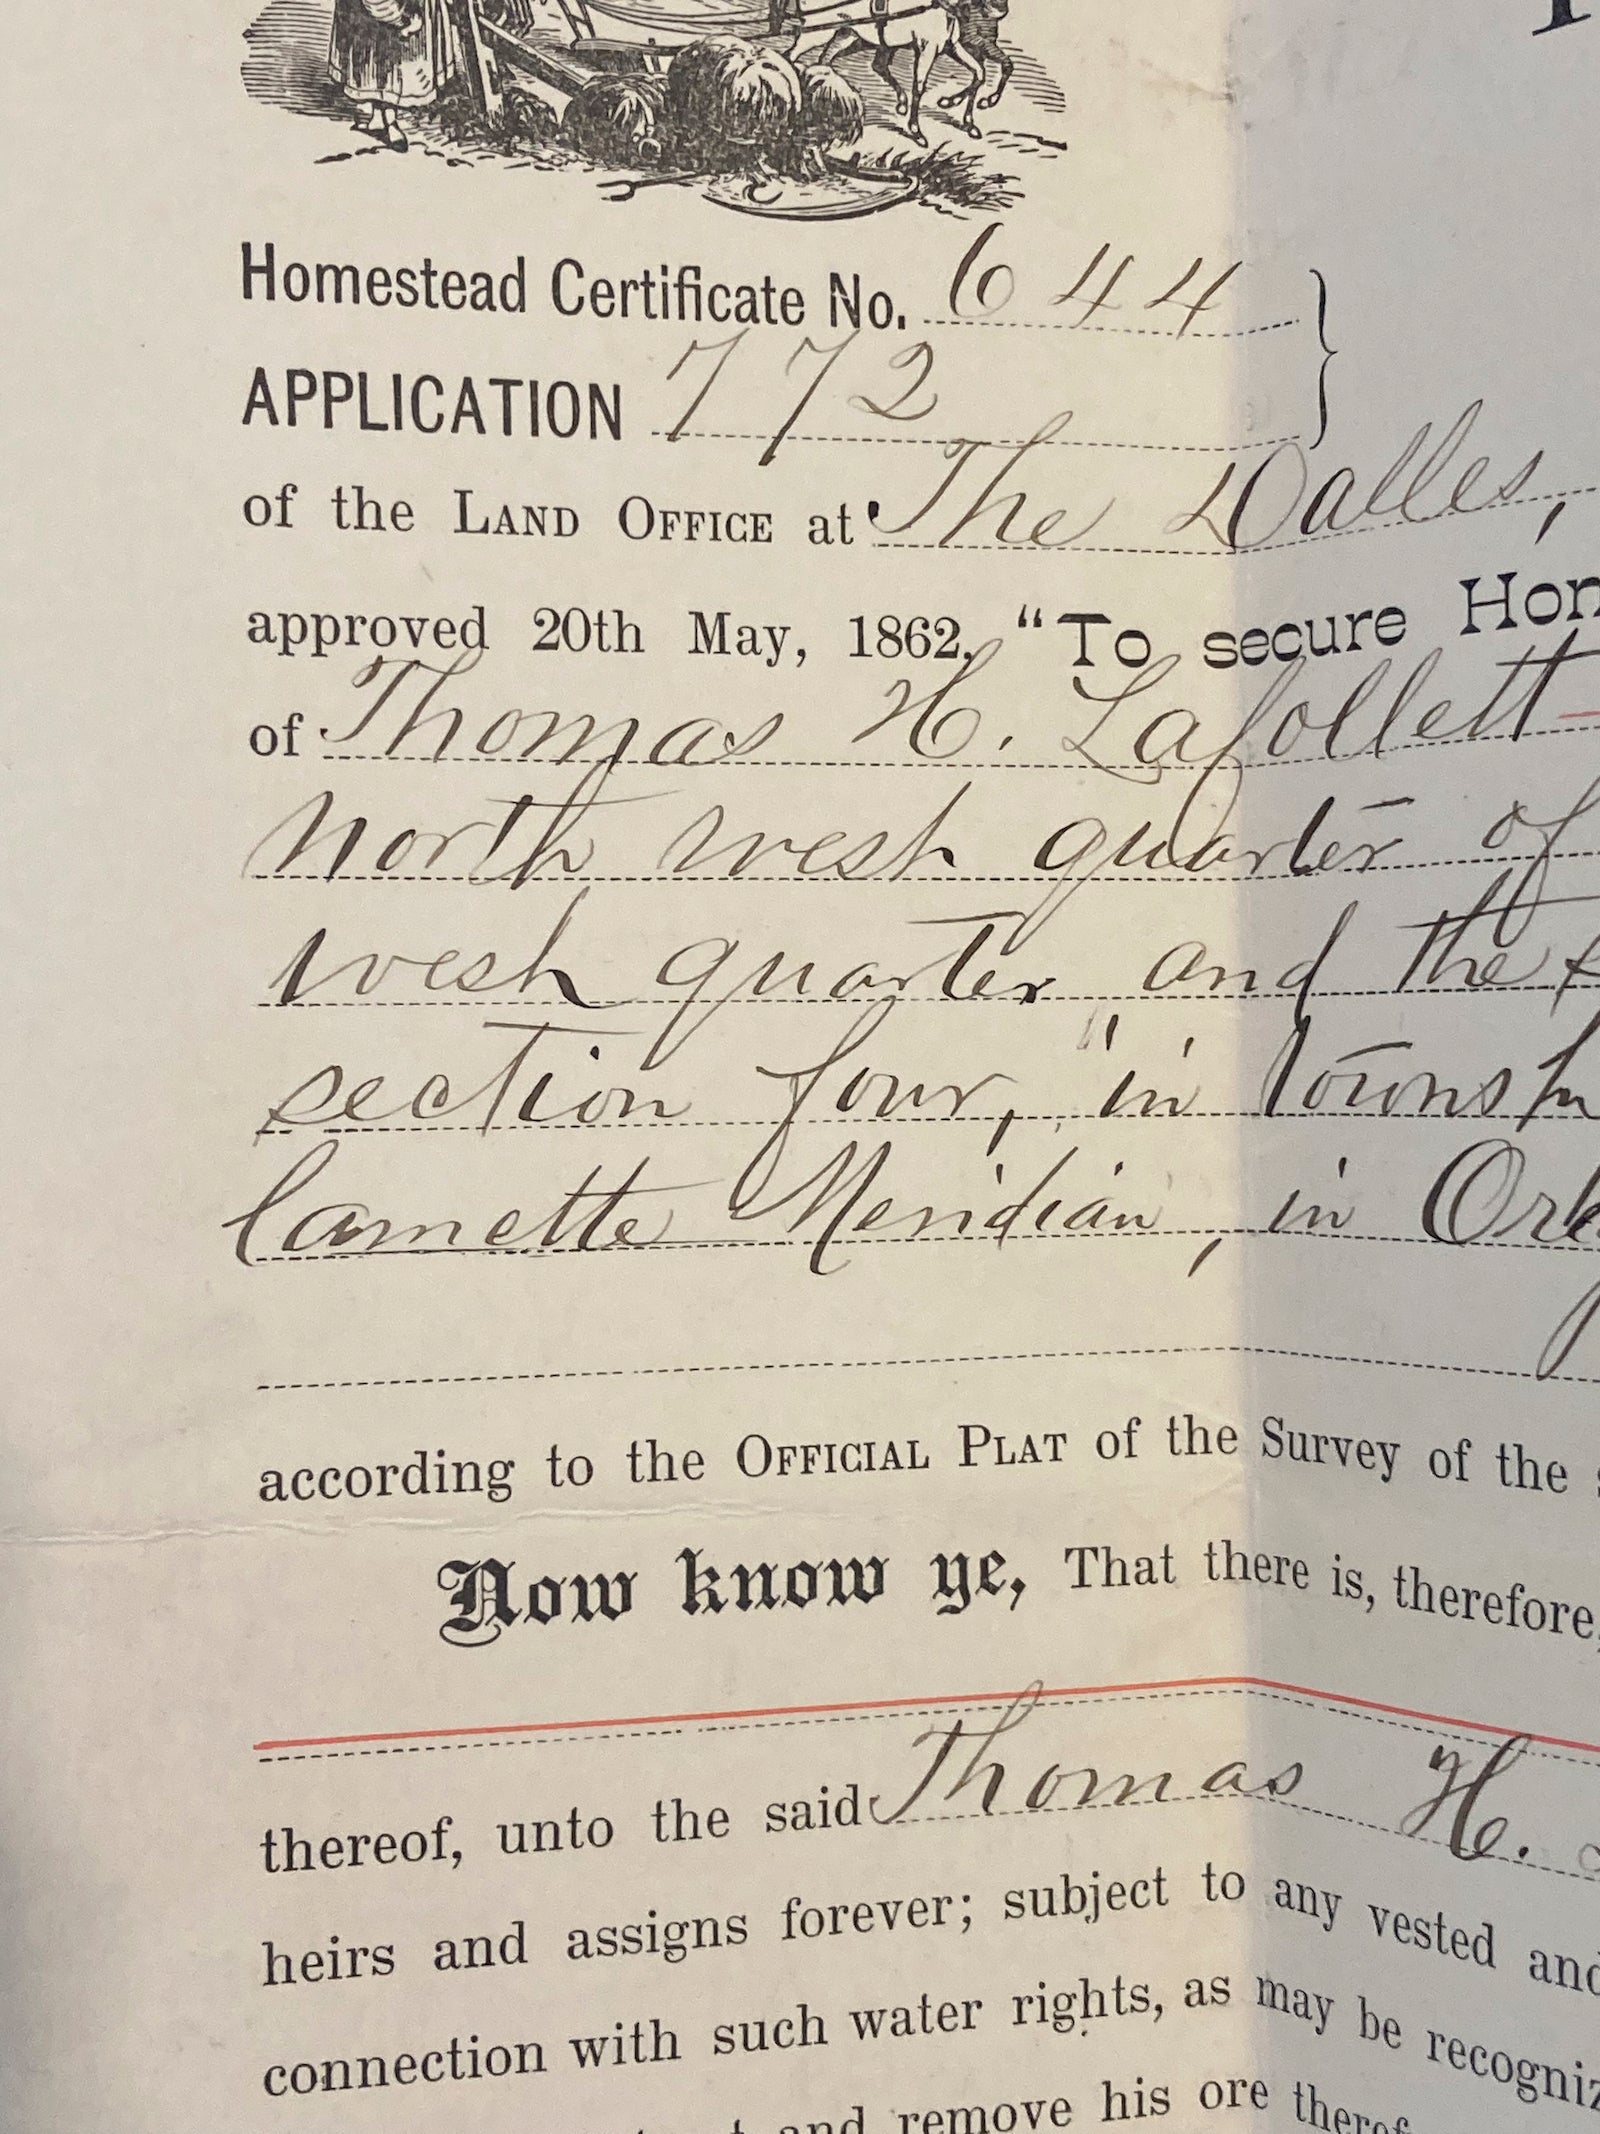 Homestead Certificate No. 644
APPLICATION 772
of the LAND OFFICE at The Dalles,
approved 20th May, 1862, "To secure Hom
of Thomas H. Lafollett
north west quarter of
west quarter and the
section four, in townsh
lamette Meridian, in Ore
according to the OFFICIAL PLAT of the Survey of the
Now know ye, That there is, therefore,
thereof, unto the said Thomas H.
heirs and assigns forever; subject to any vested and
connection with such water rights, as may be recogniz
and remove his ore theref